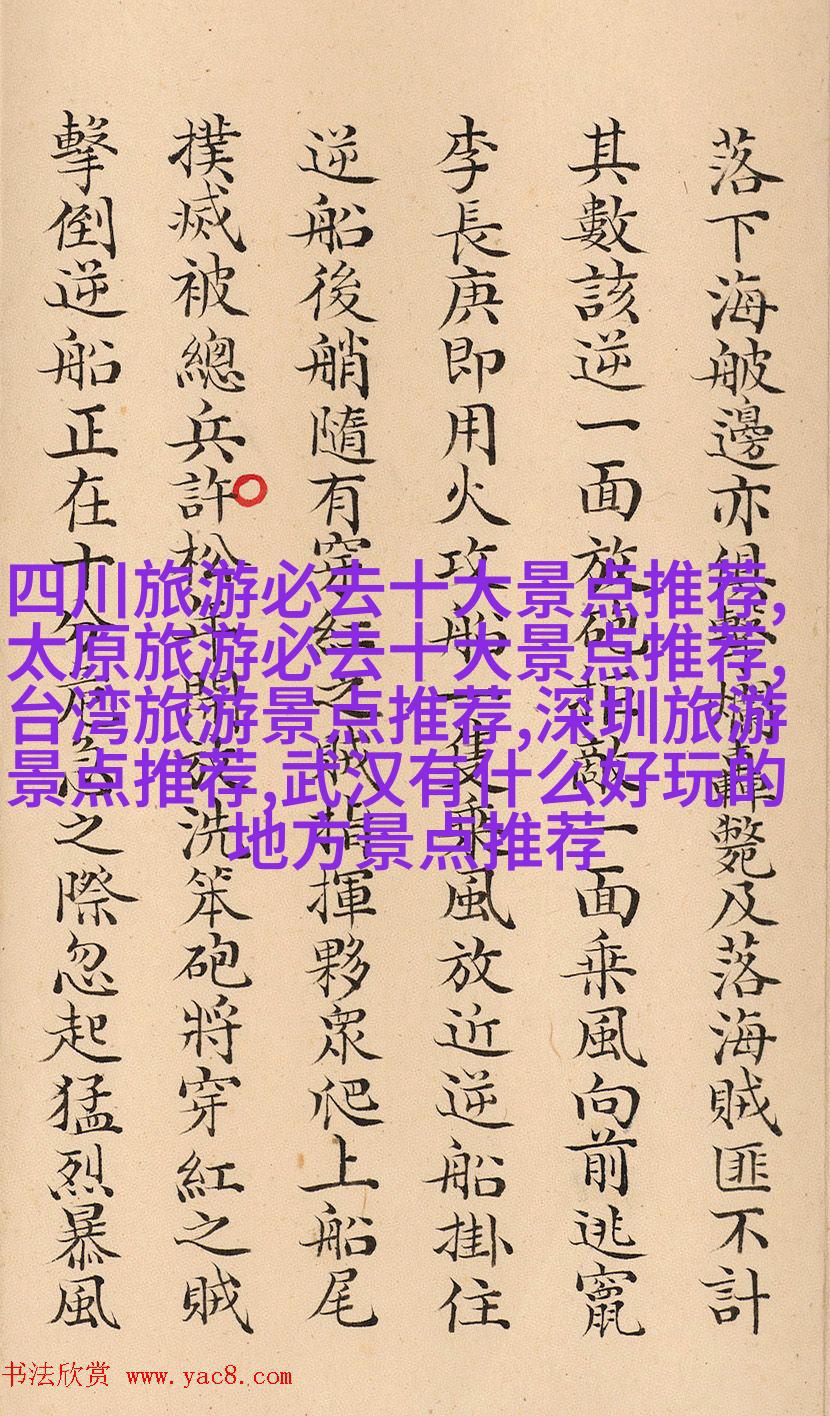 落下海邊亦擊爛轟斃及落海賊匪不計
其數該逆一面放砲拒敵一面乘風向前逃竄
李長庚即用火攻船一隻乘風放近逆船掛住
逆船後艄隨有穿紅之賊指揮夥眾爬上船尾
撲滅被總兵許松年開放洗笨砲將穿紅之賊
擊倒逆船正在十分危急之際忽起猛烈暴風
四川旅游必去十大景点推荐,
太原旅游必去十大景点推荐,
台湾旅游景点推荐,深圳旅游
景点推荐,武汉有什么好玩的
地方景点推荐
书法欣赏 www.yac8.com